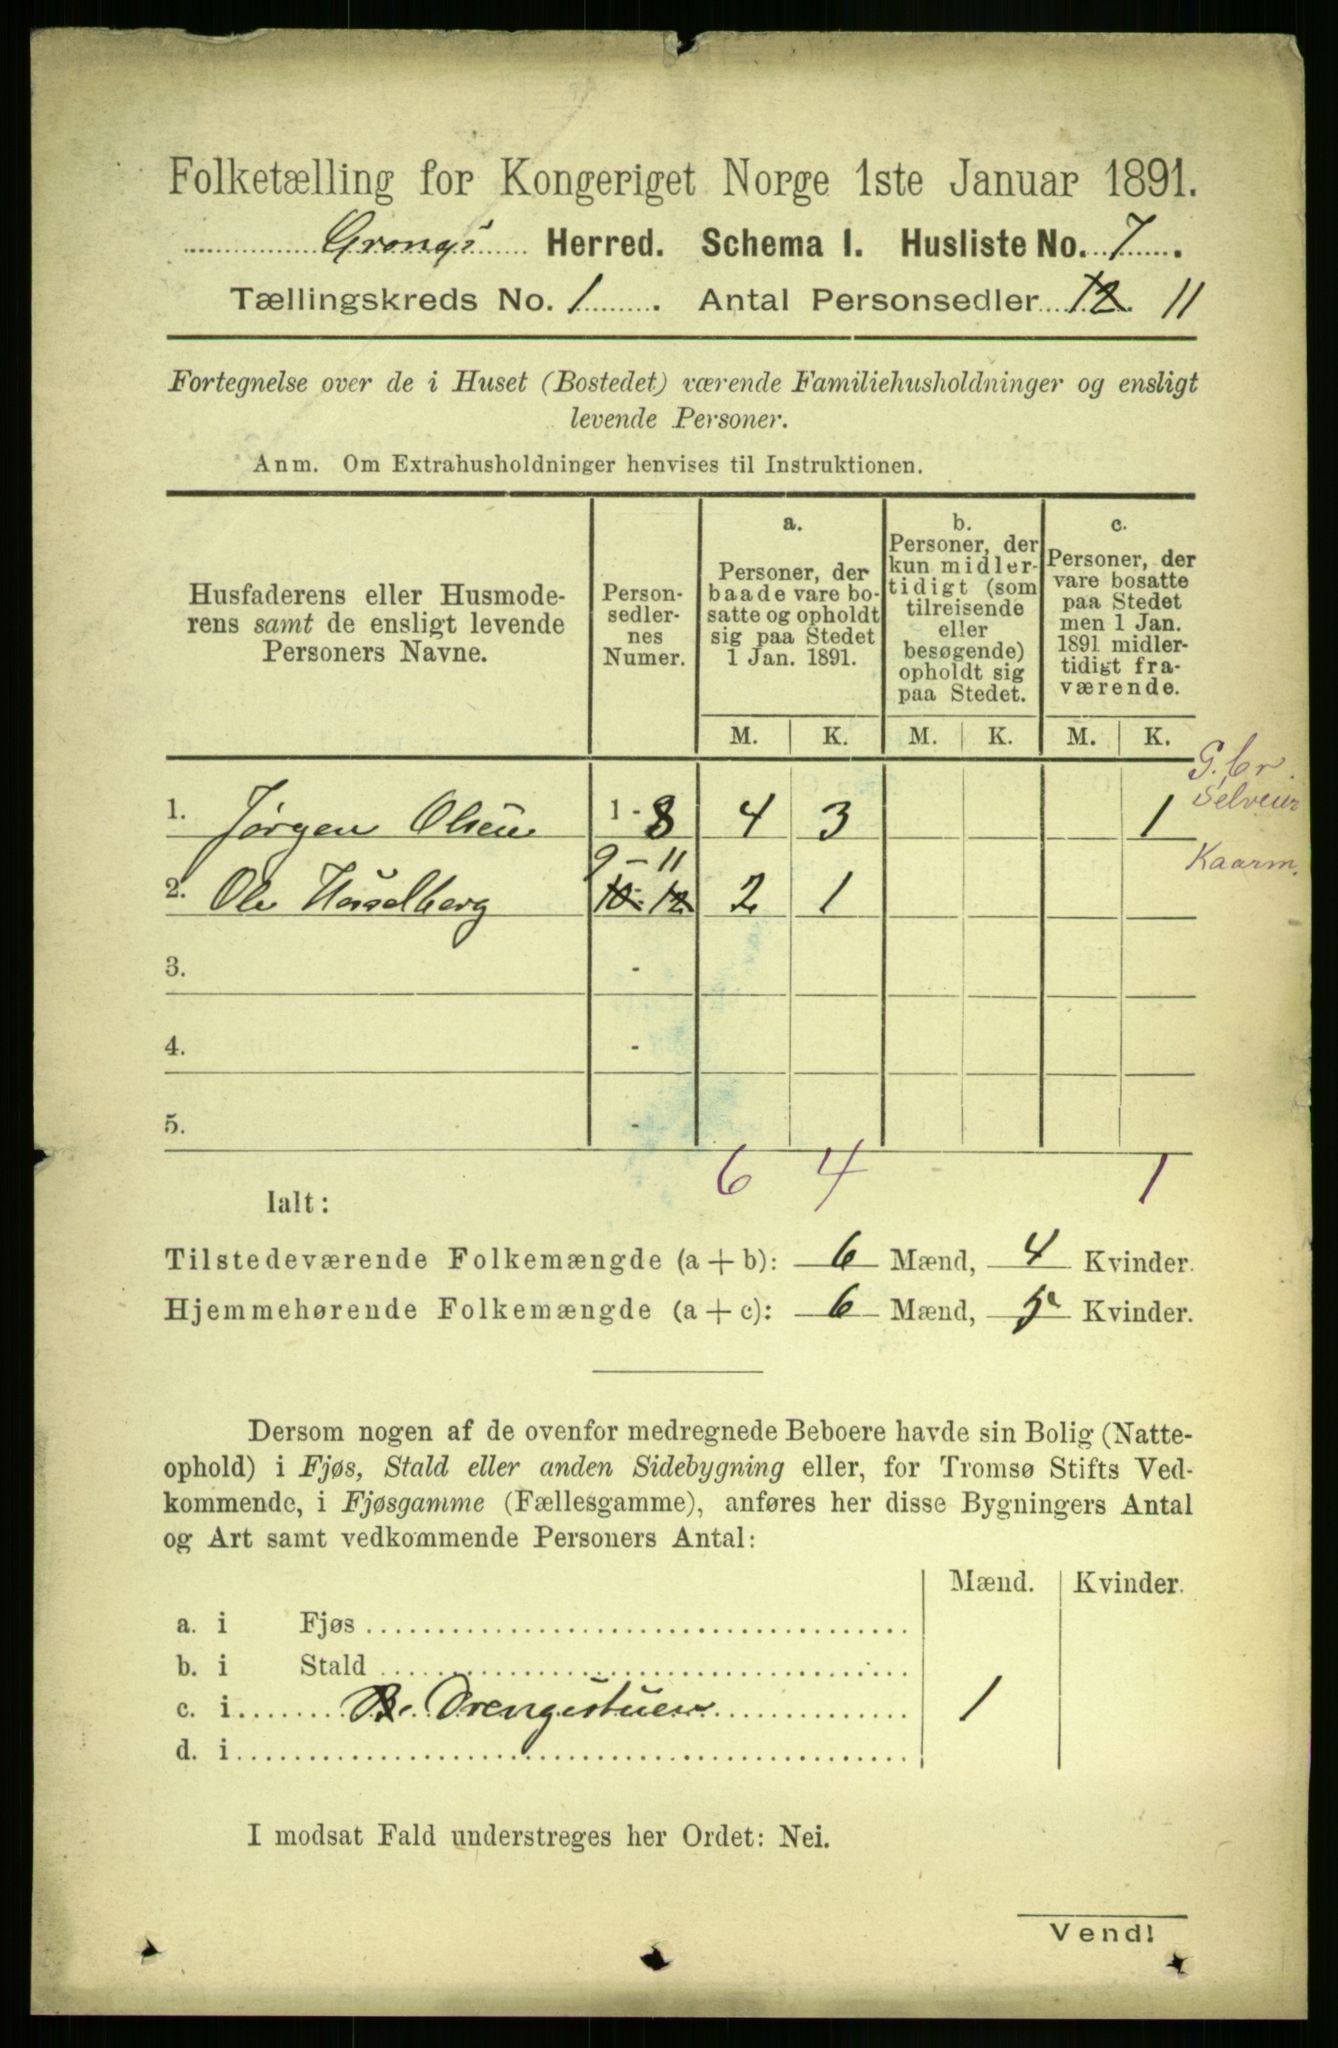 Folketælling for Kongeriget Norge 1ste Januar 1891.
Grongs Herred. Schema I. Husliste No. 7.
Tællingskreds No. 1. Antal Personsedler 12 11
Fortegnelse over de i Huset (Bostedet) værende Familiehusholdninger og ensligt
levende Personer.
Anm. Om Extrahusholdninger henvises til Instruktionen.
Husfaderens eller Husmode-
rens samt de ensligt levende
Personers Navne.
Person-
sedler-
nes
Numer.
a.
Personer, der
baade vare bo-
satte og opholdt
sig paa Stedet
1 Jan. 1891.
b.
Personer, der
kun midler-
tidigt (som
tilreisende
eller
besøgende)
opholdt sig
paa Stedet.
c.
Personer, der
vare bosatte
paa Stedet
men 1 Jan.
1891 midler-
tidigt fra-
værende.
M. K. M. K. M. K.
G.br.
Selveier
1. Jørgen Olsen 1 - 8 4 3 1
Kaarm.
9 - 11
2. Ole Hasselberg 10 - 12 2 1
3. -
4. -
5. -
6 4 1
Ialt:
Tilstedeværende Folkemængde (a + b): 6 Mænd, 4 Kvinder.
Hjemmehørende Folkemængde (a + c): 6 Mænd, 5 Kvinder.
Dersom nogen af de ovenfor medregnede Beboere havde sin Bolig (Natte-
ophold) i Fjøs, Stald eller anden Sidebygning eller, for Tromsø Stifts Ved-
kommende, i Fjøsgamme (Fællesgamme), anføres her disse Bygningers Antal
og Art samt vedkommende Personers Antal:
Mænd. Kvinder.
a. i Fjøs
b. i Stald
c. i Drengestuen 1
d. i
I modsat Fald understreges her Ordet: Nei.
Vend!